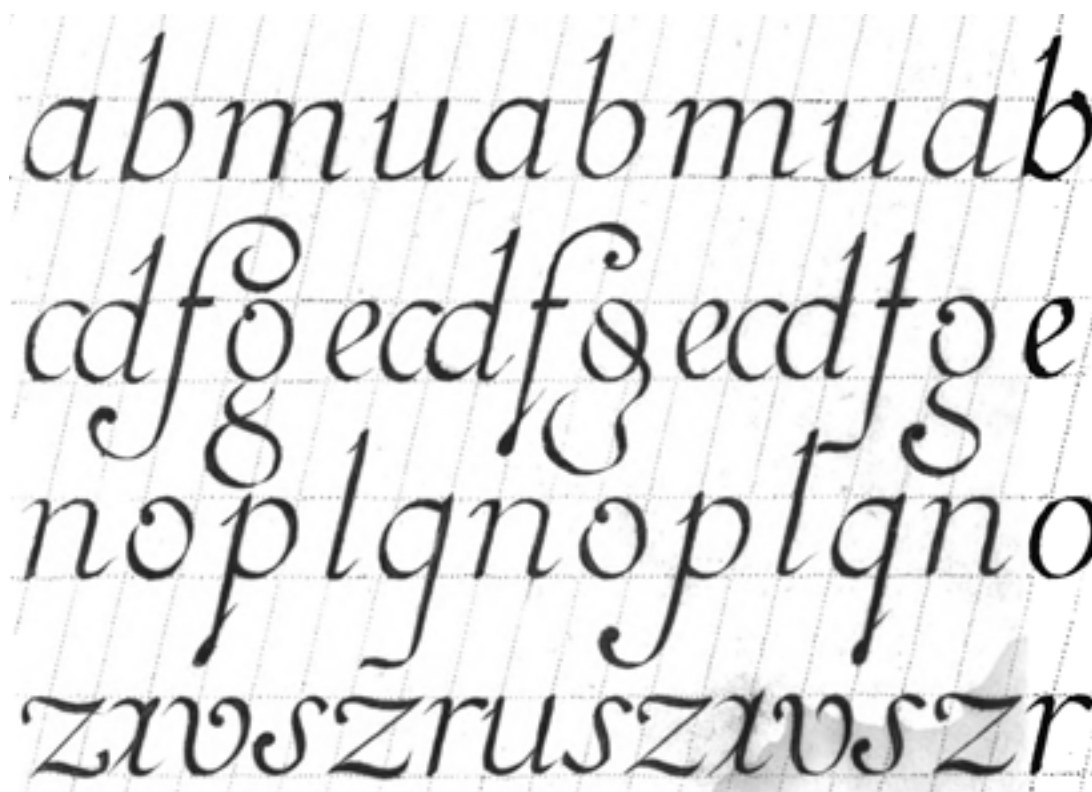 abmuabmuab
cdfgecdfgecdfge
noplqnoplqno
zxvszruszxvszr